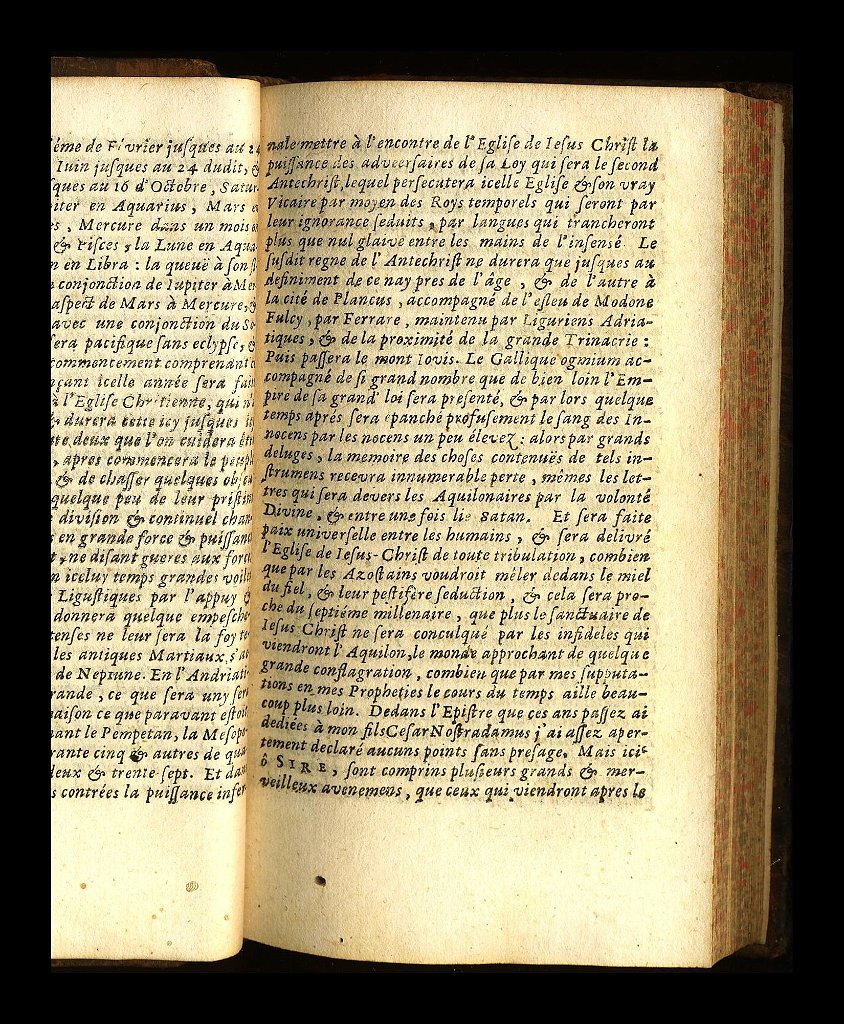 éme de Février juſques au 24
Iuin juſques au 24 dudit, &
ſques au 16 d'Octobre, Satur
piter en Aquarius, Mars e
s, Mercure dans un mois
& Piſces, la Lune en Aqua
n en Libra : la queuë à ſon
conjonction de Iupiter à Mer
aſpect de Mars à Mercure, &
avec une conjonction du S
ſera pacifique ſans eclypſe, &
commencement comprenant
nçant icelle année ſera fai
à l'Egliſe Chrêtienne, qui n
& durera cette icy juſques
te deux que l'on cuidera êt
, apres commencera le peupl
& de chaſſer quelques obſcu
quelque peu de leur priſtin
diviſion & continuel chan
s en grande force & puiſſanc
t, ne diſant gueres aux forc
n iceluy temps grandes voil
Liguſtiques par l'appuy &
donnera quelque empeſche
tenſes ne leur ſera la foy te
les antiques Martiaux s'a
de Neptune. En l'Andriati
rande, ce que ſera uny ſer
maiſon ce que paravant eſtoit
nant le Pempotan, la Meſopo
rante cinq & autres de qua
deux & trente-ſept. Et dan
s contrées la puiſſance infer
nale mettre à l'encontre de l'Egliſe de Ieſus Chriſt la
puiſſance des adveerſaires de ſa Loy qui ſera le ſecond
Antechriſt, lequel perſecutera icelle Egliſe & ſon vray
Vicaire par moyen des Roys temporels qui ſeront par
leur ignorance ſeduits, par langues qui trancheront
plus que nul glaive entre les mains de l'inſenſé. Le
ſuſdit regne de l'Antechriſt ne durera que juſques au
definiment de ce nay pres de l'âge, & de l'autre à
la cité de Plancus, accompagné de l'eſleu de Modone
Fulcy, par Ferrare, maintenu par Liguriens Adria-
tiques, & de la proximité de la grande Trinacrie :
Puis paſſera le mont Iovis. Le Gallique ogmium ac-
compagné de ſi grand nombre que de bien loin l'Em-
pire de ſa grand' loi ſera preſenté, & par lors quelque
temps aprés ſera épanché profuſement le ſang des In-
nocens par les nocens un peu élevez : alors par grands
deluges, la memoire des choſes contenuës de tels in-
ſtrumens recevra innumerable perte, mêmes les let-
tres qui ſera devers les Aquilonaires par la volonté
Divine, & entre une fois lié Satan. Et ſera faite
paix univerſelle entre les humains, & ſera delivré
l'Egliſe de Ieſus-Chriſt de toute tribulation, combien
que par les Azoſtains voudroit méler dedans le miel
du fiel, & leur peſtifère ſeduction, & cela ſera pro-
che du ſeptiéme millenaire, que plus le ſanctuaire de
Ieſus Chriſt ne ſera conculqué par les infideles qui
viendront l'Aquilon, le monde approchant de quelque
grande conflagration, combien que par mes ſupputa-
tions en mes Propheties le cours du temps aille beau-
coup plus loin. Dedans l'Epiſtre que ces ans paſſez ai
dediées à mon fils Ceſar Noſtradamus j'ai aſſez aper-
tement declaré aucuns points ſans preſage. Mais ici
ô SIRE, ſont comprins pluſieurs grands & mer-
veilleux avenemens, que ceux qui viendront apres le